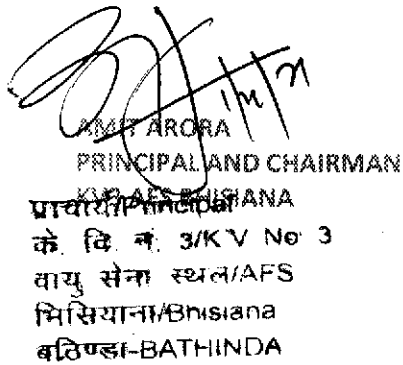 AMIT ARORA
PRINCIPAL AND CHAIRMAN
AFS BHISIANA
प्राचार्य/Principal
के. वि. नं. 3/K V No 3
वायु सेना स्थल/AFS
भिसियाना/Bhisiana
बठिण्डा-BATHINDA